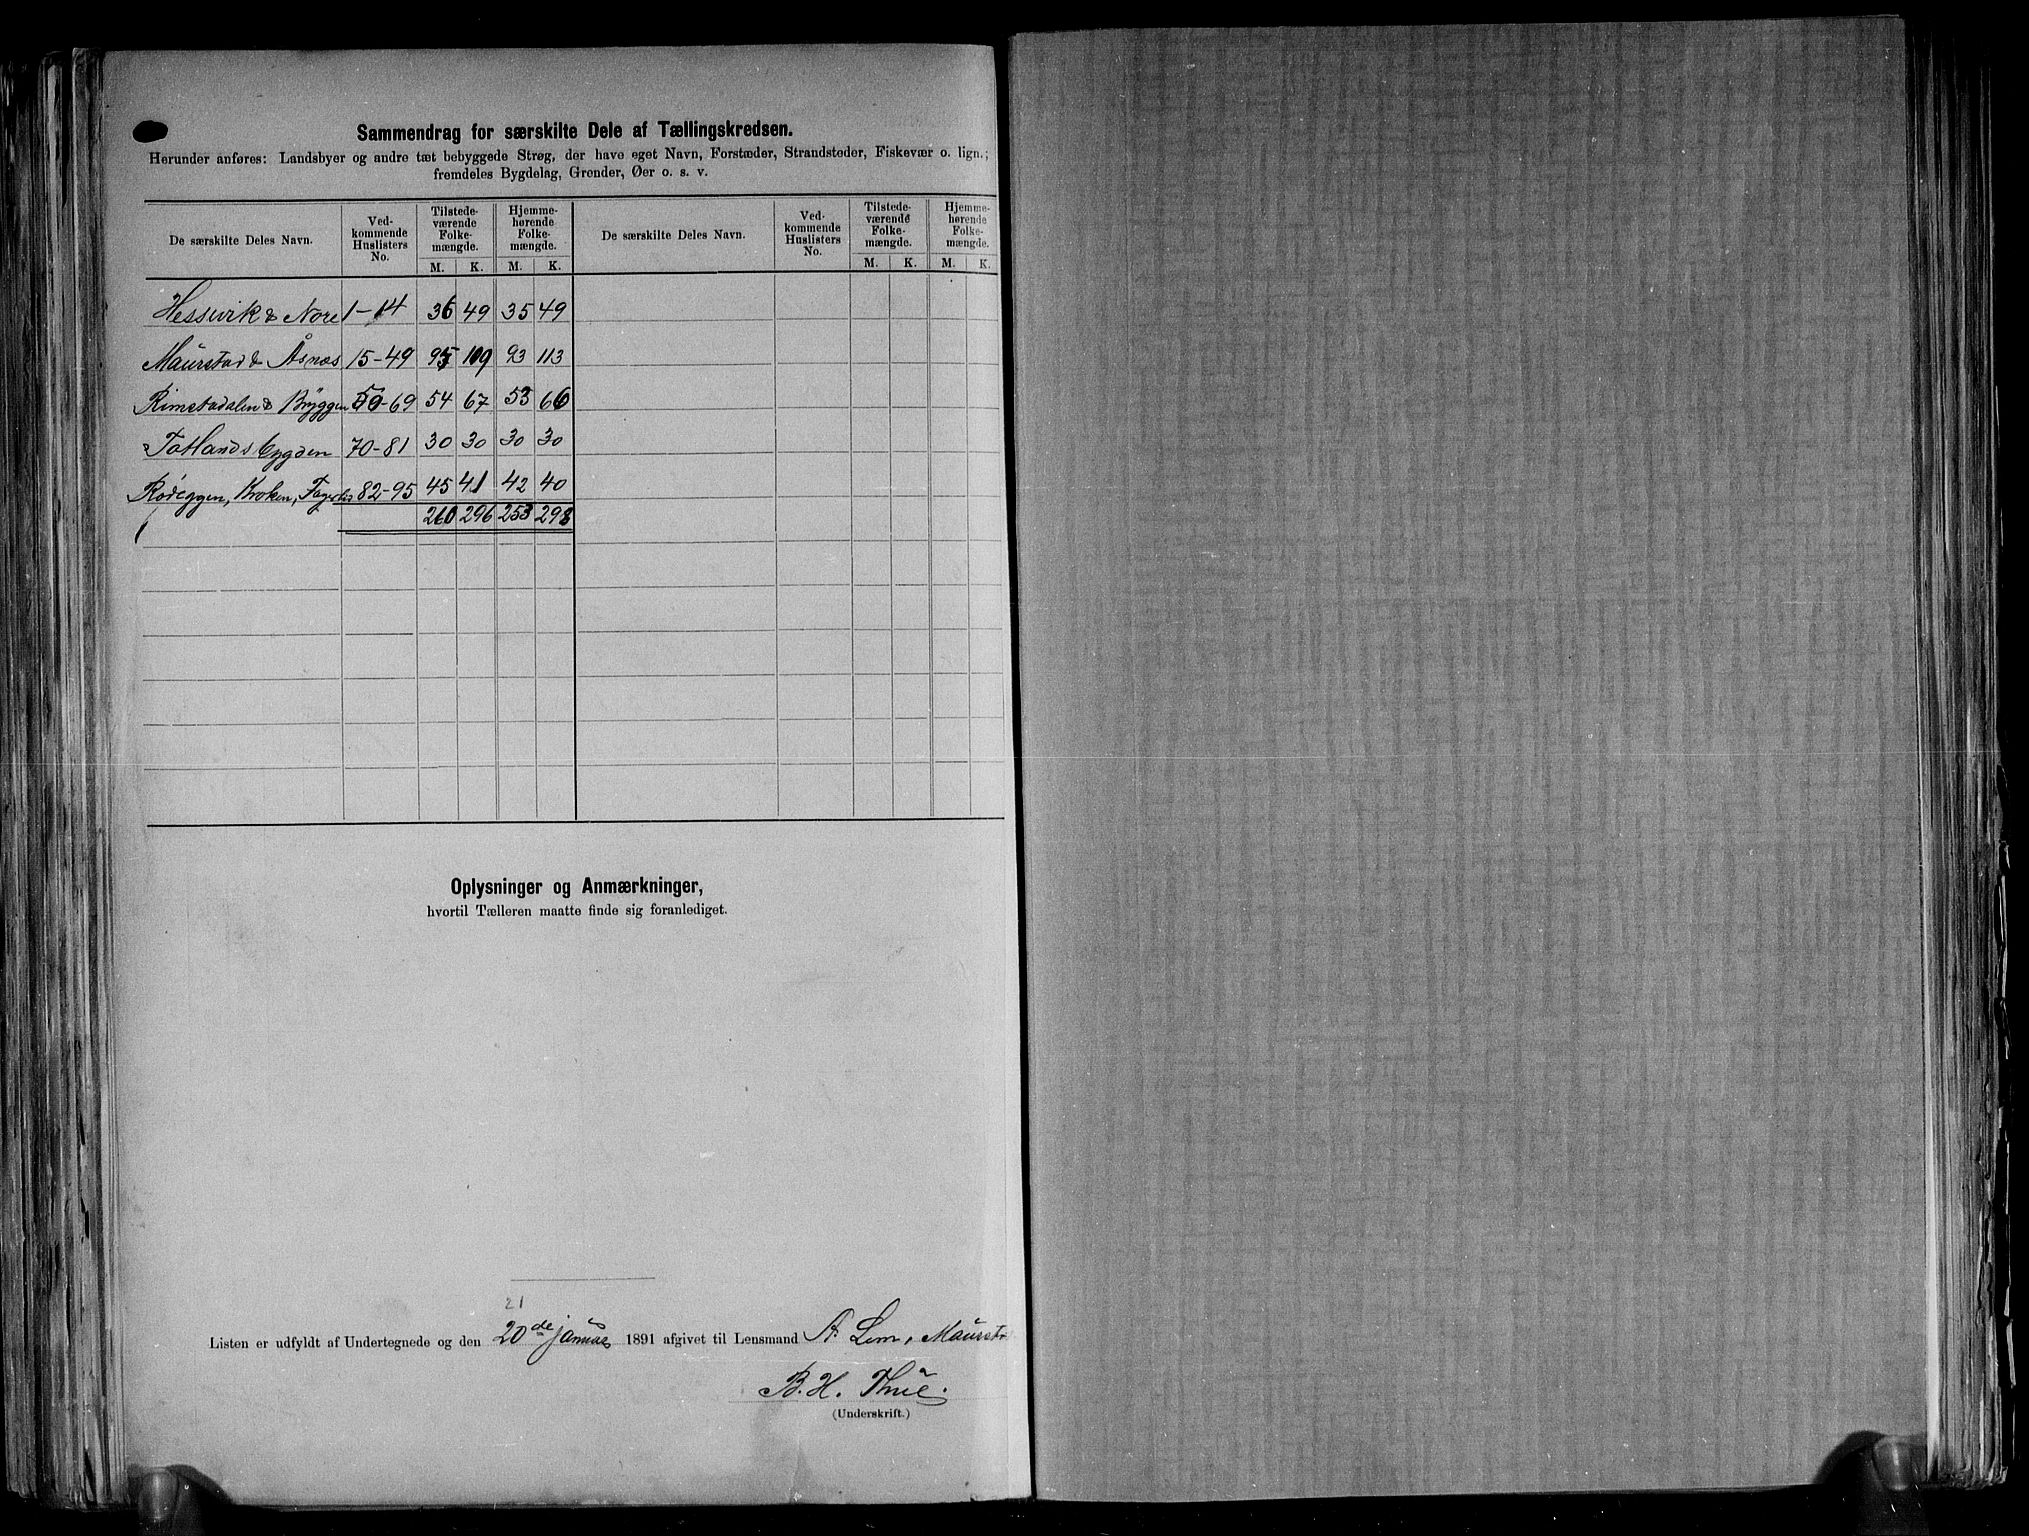 Sammendrag for særskilte Dele af Tællingskredsen.
Herunder anføres: Landsbyer og andre tæt bebyggede Strøg, der have eget Navn, Forstæder, Strandsteder, Fiskevær o. lign.;
fremdeles Bygdelag, Grender, Øer o. s. v.
De særskilte Deles Navn. Ved-kommende Huslisters No. Tilstede-værende Folke-mængde. Hjemme-hørende Folke-mængde. De særskilte Deles Navn. Ved-kommende Huslisters No. Tilstede-værende Folke-mængde. Hjemme-hørende Folke-mængde.
M. K. M. K. M. K. M. K.
Hessevik & Nore 1-14 36 49 35 49
Maurstad & Åsnæs 15-49 95 109 93 113
Rimstadalen & Bryggen 50-69 54 67 53 66
Totlandsbygden 70-81 30 30 30 30
Rødeggen, Kroken, 82-95 45 41 42 40
260 296 253 298
Oplysninger og Anmærkninger,
hvortil Tælleren maatte finde sig foranlediget.
21
Listen er udfyldt af Undertegnede og den 20de januar 1891 afgivet til Lensmand A. Lem, Maurst
B. H. Thue.
(Underskrift.)